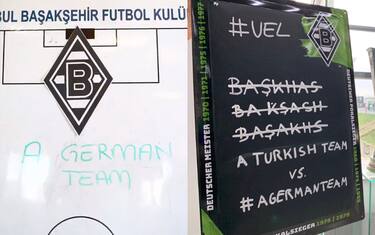 BUL BAŞAKŞEHİR FUTBOL KULÜ
B
A GERMAN
TEAM
#UEL
B
BAŞKHAS
BAKSASH
BAŞAKHS
A TURKISH TEAM
VS.
#AGERMANTEAM
DEUTSCHER MEISTER 1970 | 1971 | 1975 | 1976 | 1977
DEUTSCHER POKALSIEGER 1960 | 1973 | 1995
KALSIEGER 1975 & 1979